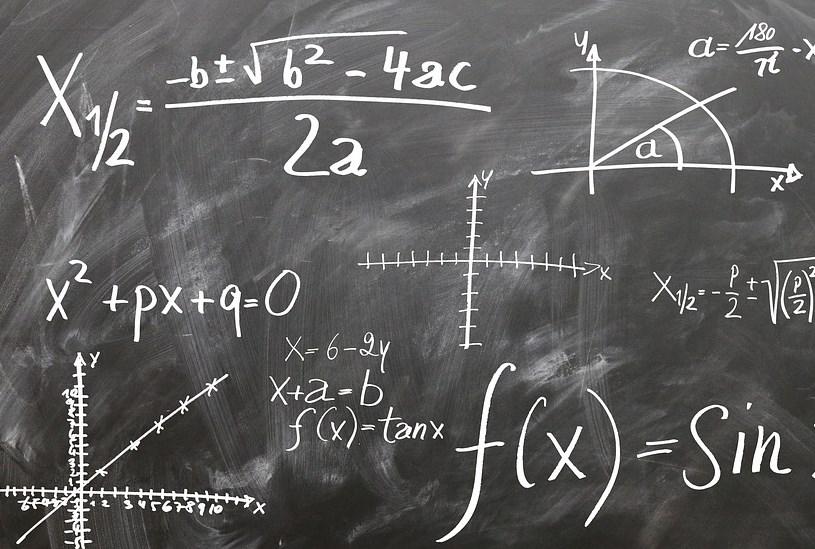 X₁/₂ = (-b ± √(b² - 4ac)) / 2a
y
a = 180/π · x
a
x
y
x
x² + px + q = 0
X₁/₂ = -p/2 ± √((p/2)²
x = 6 - 2y
x + a = b
f(x) = tanx
f(x) = Sin
y
1 2 3 4 5 6 7 8 9 10
x